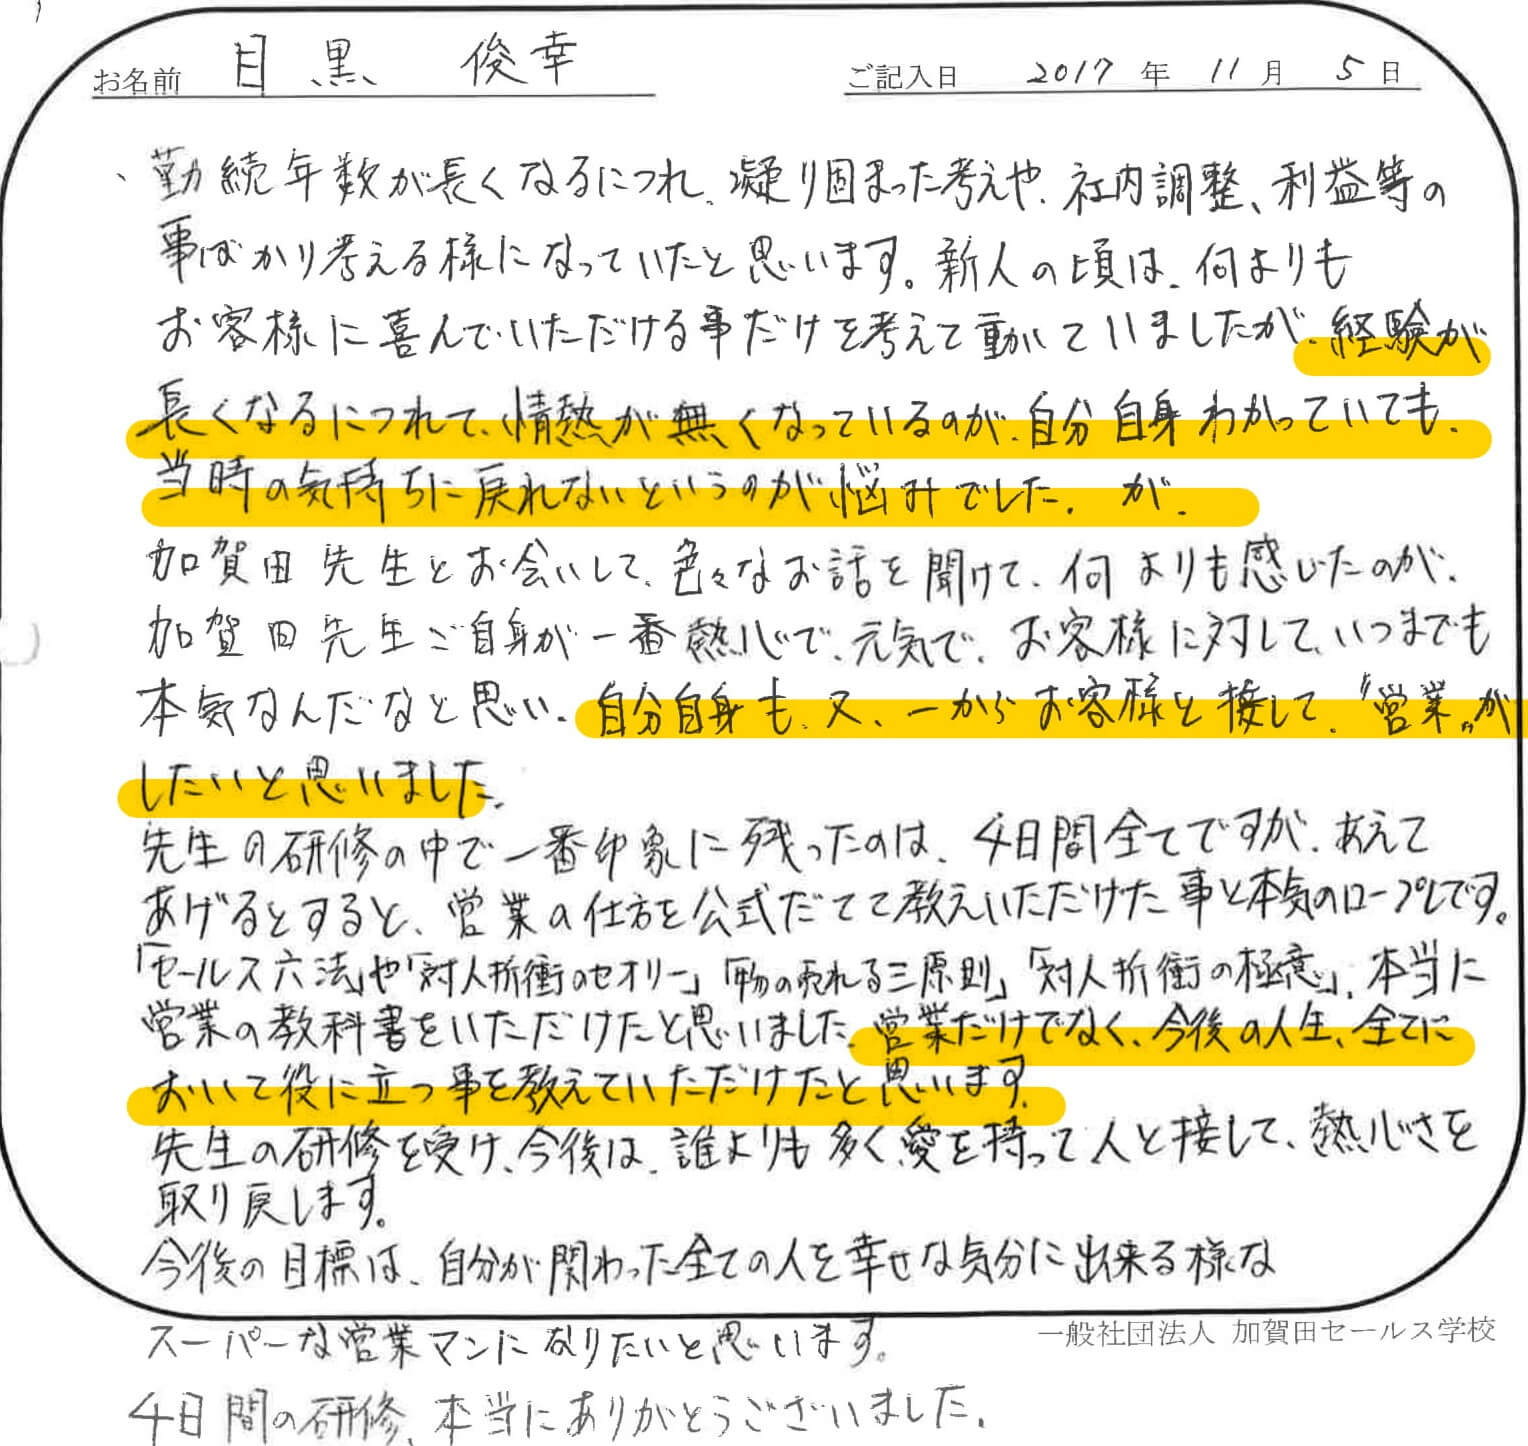 お名前 目黒 俊幸 ご記入日 2017 年 11 月 5 日
、勤続年数が長くなるにつれ、凝り固まった考えや、社内調整、利益等の
事ばかり考える様になっていたと思います。新人の頃は、何よりも
お客様に喜んでいただける事だけを考えて動いていましたが、経験が
長くなるにつれて、情熱が無くなっているのが、自分自身わかっていても、
当時の気持ちに戻れないというのが悩みでした。が、
加賀田先生とお会いして、色々なお話を聞けて、何よりも感じたのが、
加賀田先生ご自身が一番熱心で、元気で、お客様に対して、いつまでも
本気なんだなと思い、自分自身も、又、一からお客様と接して、〝営業〟が
したいと思いました。
先生の研修の中で一番印象に残ったのは、4日間全てですが、あえて
あげるとすると、営業の仕方を公式だてて教えいただけた事と本気のロープレです。
「セールス六法」や「対人折衝のセオリー」「物の売れる三原則」「対人折衝の極意」、本当に
営業の教科書をいただけたと思いました。営業だけでなく、今後の人生、全てに
おいて役に立つ事を教えていただけたと思います。
先生の研修を受け、今後は、誰よりも多く愛を持って人と接して、熱心さを
取り戻します。
今後の目標は、自分が関わった全ての人を幸せな気分に出来る様な
スーパーな営業マンになりたいと思います。
一般社団法人 加賀田セールス学校
4日間の研修、本当にありがとうございました。